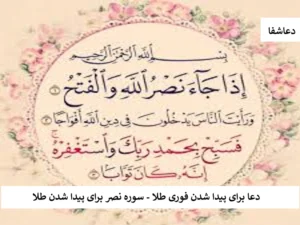 دعاشفا
بِسْمِ اللَّهِ الرَّحْمَٰنِ الرَّحِيمِ
إِذَا جَاءَ نَصْرُ اللَّهِ وَالْفَتْحُ
وَرَأَيْتَ النَّاسَ يَدْخُلُونَ فِي دِينِ اللَّهِ أَفْوَاجًا
فَسَبِّحْ بِحَمْدِ رَبِّكَ وَاسْتَغْفِرْهُ
إِنَّهُ كَانَ تَوَّابًا
دعا برای پیدا شدن فوری طلا - سوره نصر برای پیدا شدن طلا